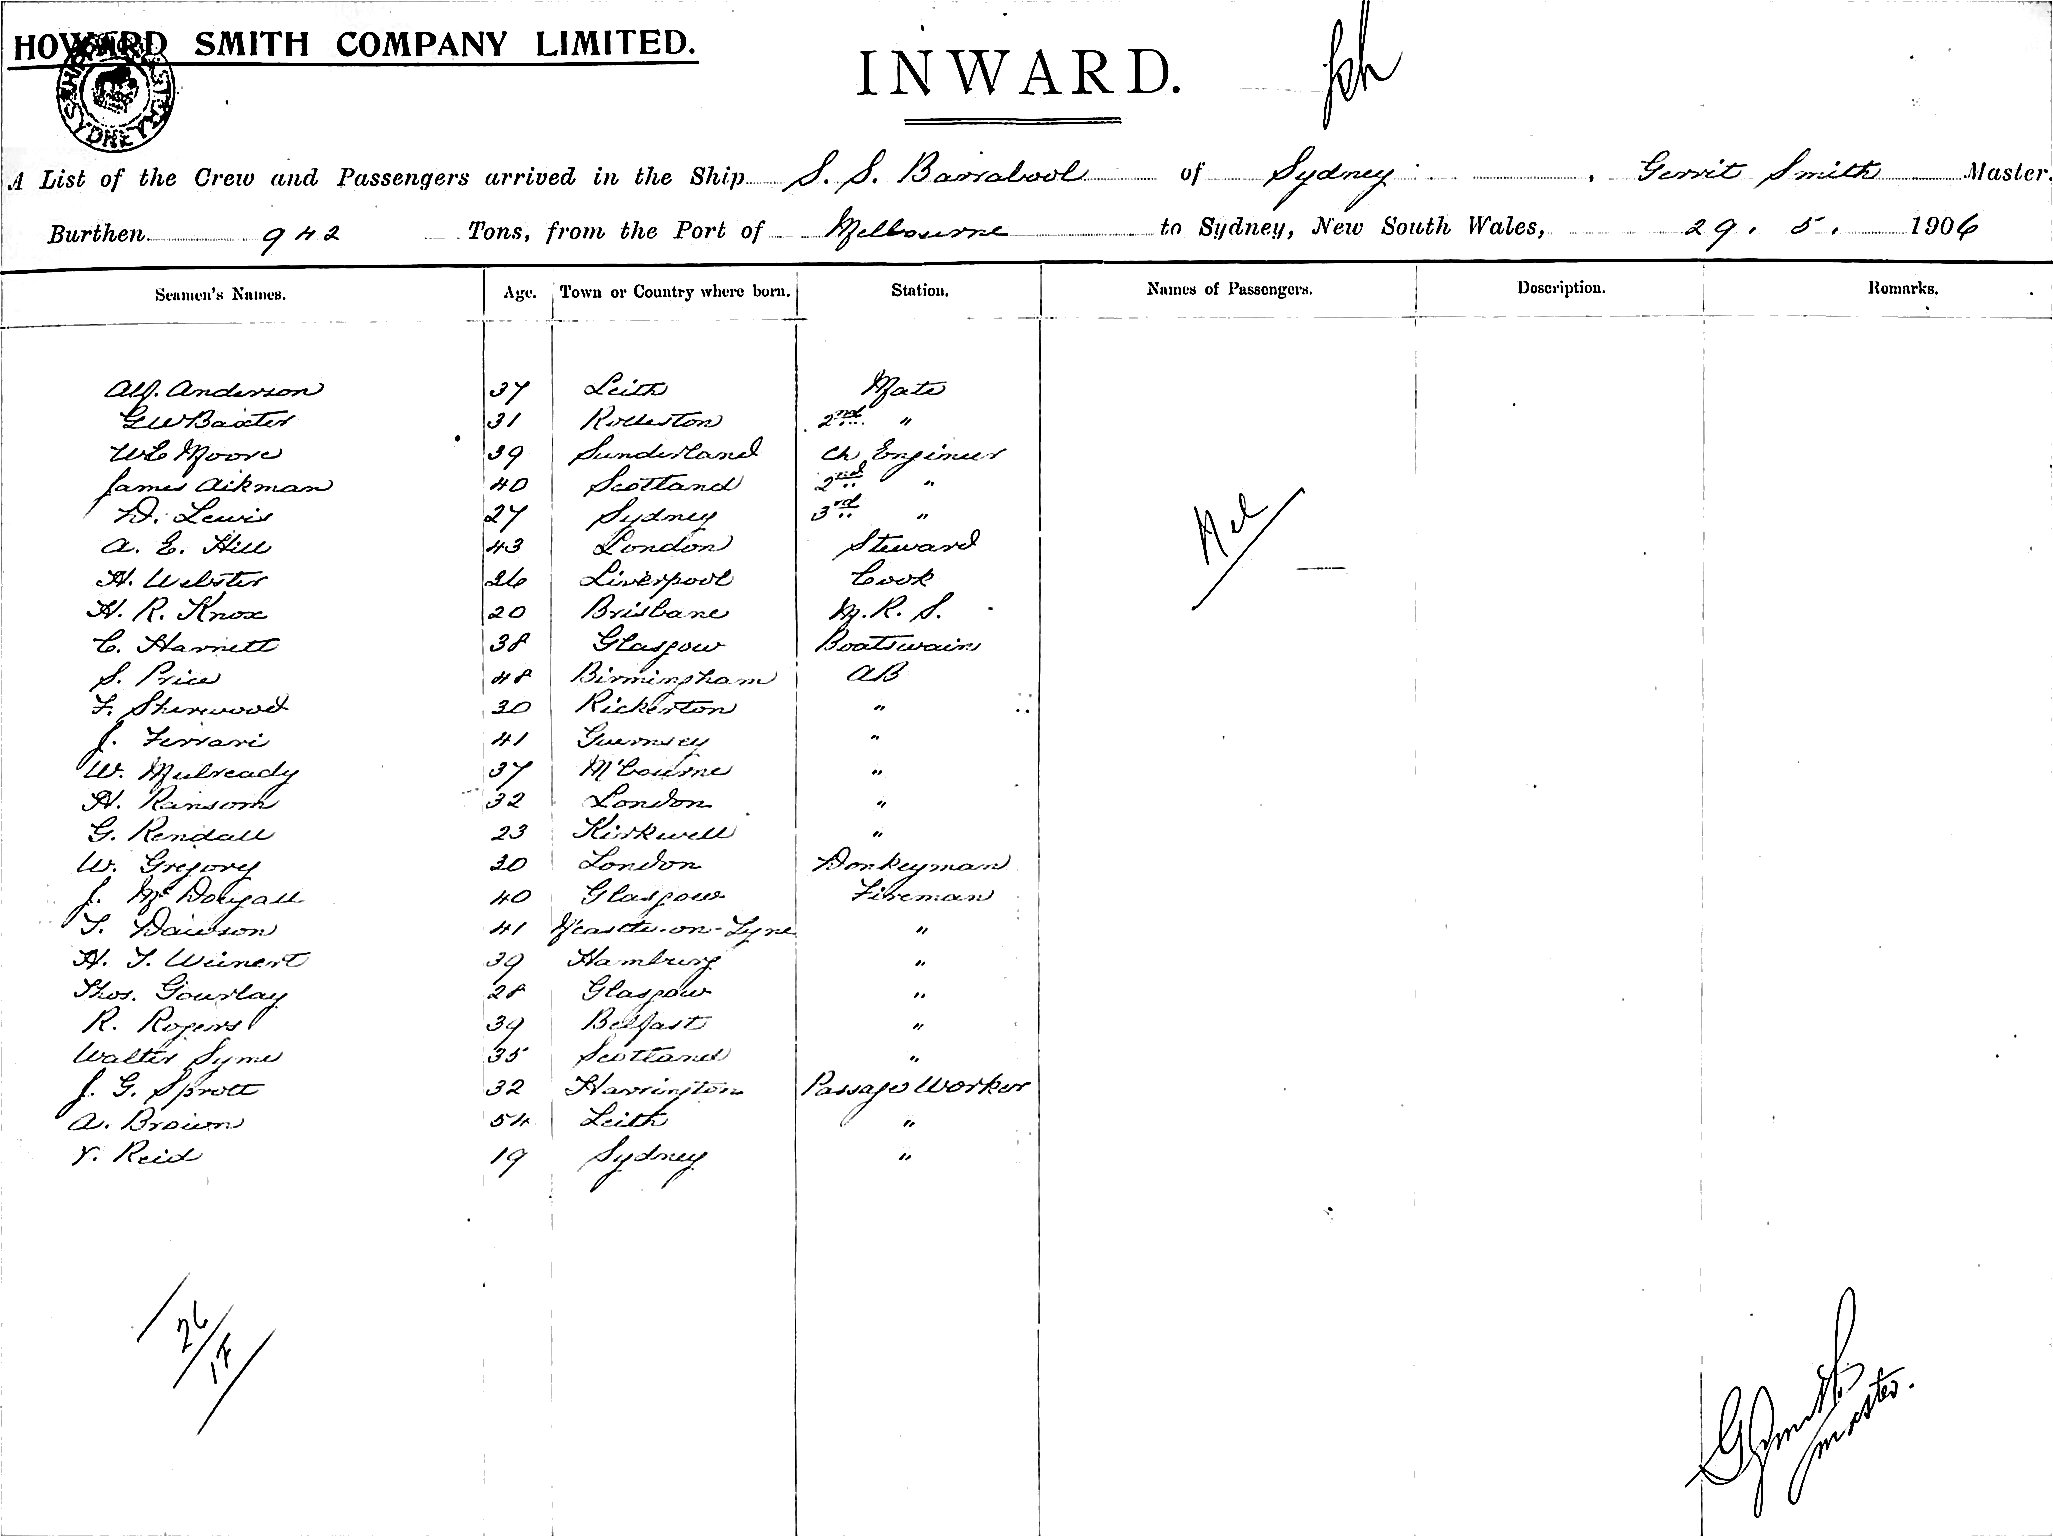 HOWARD SMITH COMPANY LIMITED.
SYDNEY
INWARD.
A List of the Crew and Passengers arrived in the Ship S. S. Barrabool of Sydney, Gerrit Smith Master.
Burthen 942 Tons, from the Port of Melbourne to Sydney, New South Wales, 29. 5. 1906
Seamen's Names. Age. Town or Country where born. Station. Names of Passengers. Description. Remarks.
Alf. Anderson 37 Leith Mate
G W Baxter 31 Rolleston 2nd "
W E Moore 39 Sunderland Ch Engineer
James Aikman 40 Scotland 2nd "
D. Lewis 27 Sydney 3rd "
A. E. Hill 43 London Steward
Nil
H. Webster 26 Liverpool Cook
H. R. Knox 20 Brisbane M. R. S.
C. Harnett 38 Glasgow Boatswain
S. Price 48 Birmingham AB
F. Sherwood 30 Rickerton "
J. Ferrari 41 Guernsey "
W. Mulready 37 M'bourne "
H. Ransom 32 London "
G. Rendall 23 Kirkwell "
W. Gregory 30 London Donkeyman
J. McDougall 40 Glasgow Fireman
T. Dawson 41 N'castle-on-Tyne "
H. T. Weinert 39 Hamburg "
Thos. Gourlay 28 Glasgow "
R. Rogers 39 Belfast "
Walter Syme 35 Scotland "
J. G. Sprott 32 Harrington Passage Worker
A. Brown 54 Leith "
Reid 19 Sydney "
26
G Smith
Master.